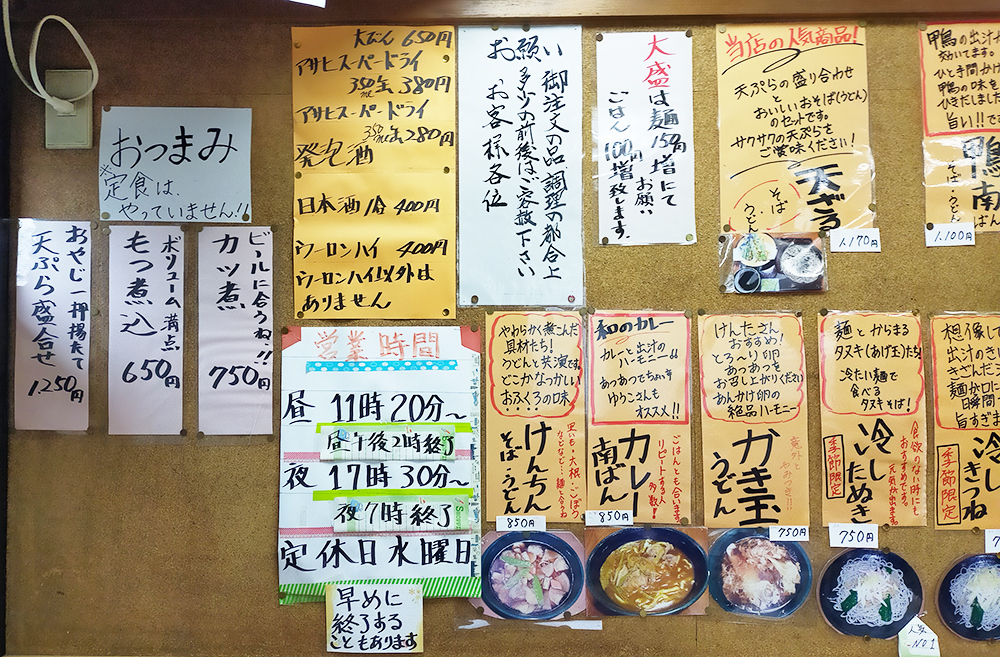 おつまみ
※定食は、
やっていません!!
おやじ一押揚たて
天ぷら盛合せ
1.250円
ボリューム満点
もつ煮込
650円
ビールに合うね!!
カツ煮
750円
大びん 650円
アサヒスーパードライ
350ml缶 380円
アサヒスーパードライ
350ml缶 280円
発泡酒
日本酒1合 400円
ウーロンハイ 400円
ウーロンハイ以外は
ありません
お願い
御注文の品調理の都合上
多少の前後はご容赦下さい
お客様各位
大盛は麺150円増にて
お願い
ごはん100円増致します。
当店の人気商品!
天ぷらの盛り合わせ
と
おいしいおそば(うどん)
のセットです。
サクサクの天ぷらを
ご賞味ください!
天ざる
そば
うどん
1,170円
甲鴨の出汁が
効いてます。
ひと手間かけ
甲鴨の味を
ひきだしまし
旨い!!です
鴨南ばん
そば・うどん
1,100円
営業時間
昼 11時20分~
昼午後2時終了
夜 17時30分~
夜7時終了
定休日水曜日
早めに
終了する
こともあります
やわらかく煮こんだ
具材たち!
うどんと共演です
どこかなつかしい
おふくろの味…
けんちん
そば・うどん
850円
和のカレー
カレーと出汁の
ハーモニー!!
あつあつでちょい辛
ゆうこさんも
オススメ!!
ごはんとも合います。
リピートする人
多数!
カレー
南ばん
850円
けんたさん
おすすめ!
とろ~り卵
あつあつを
お召し上がりください
あんかけ卵の
絶品ハーモニー
意外と
やみつき!!
かき玉
うどん
750円
麺とからまる
タヌキ(あげ玉)たち!
冷たい麺で
食べる
タヌキそば!
食欲のない時にも
おすすめです。
元気が出ます。
冷し
たぬき
季節限定
750円
人気
No1
想像し
出汁のき
きざんだ
麺が口に
瞬間
旨すぎま
冷し
きつね
季節限定